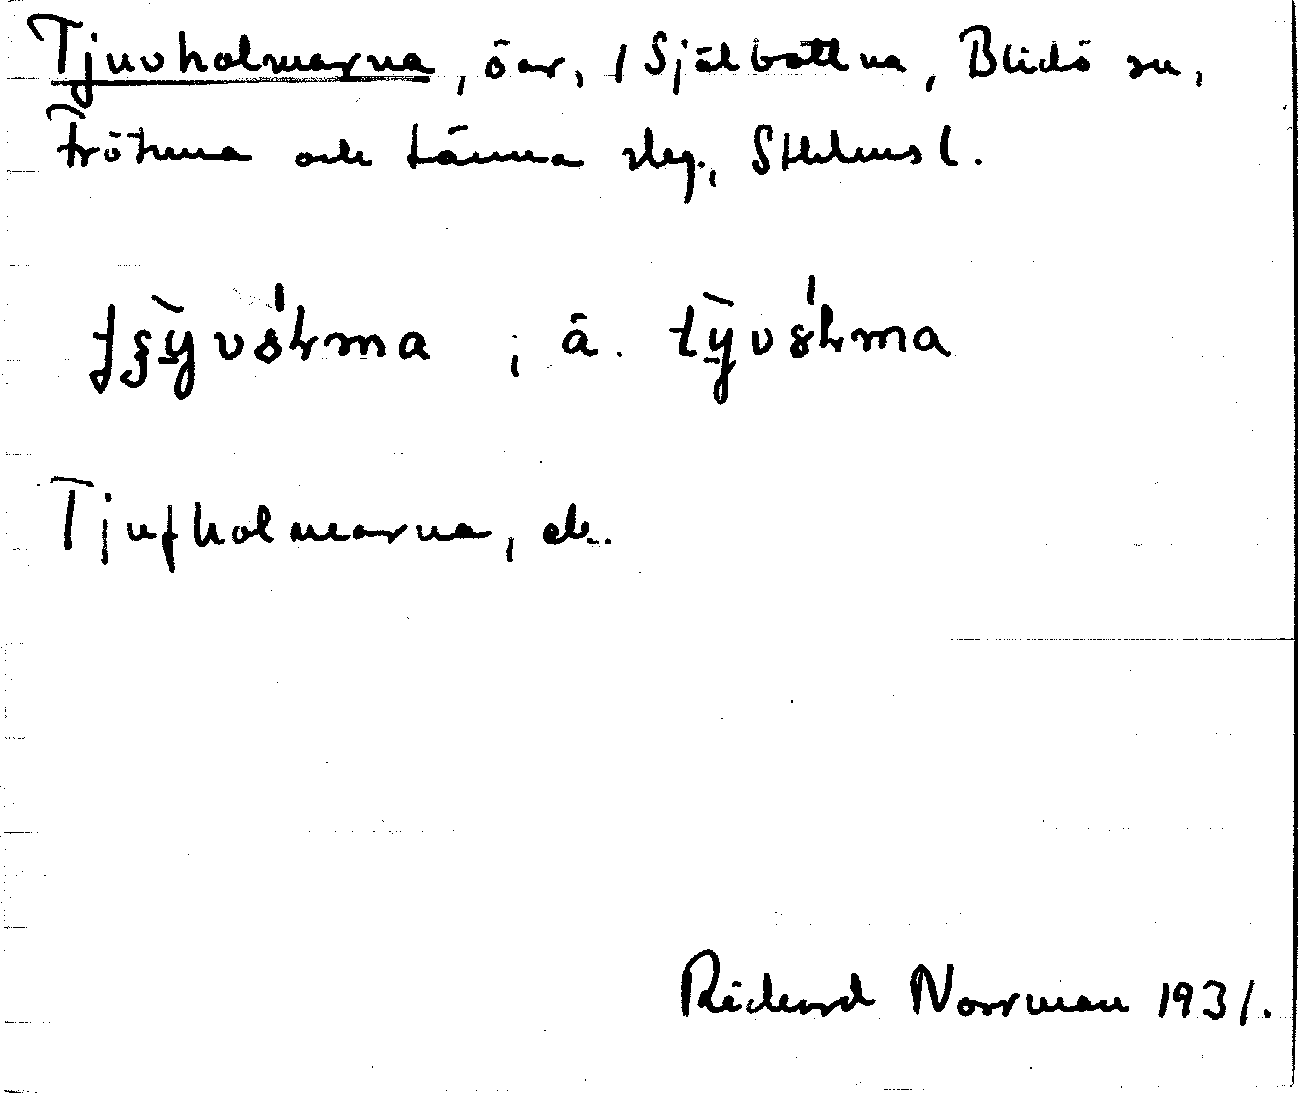 Tjuvholmarna, öar, / Själbottna, Blidö sn,
Frötuna och Länna slg., Sthlms l.
; ä.
Tjufholmarna, ek.
Rickard Norrman 1931.